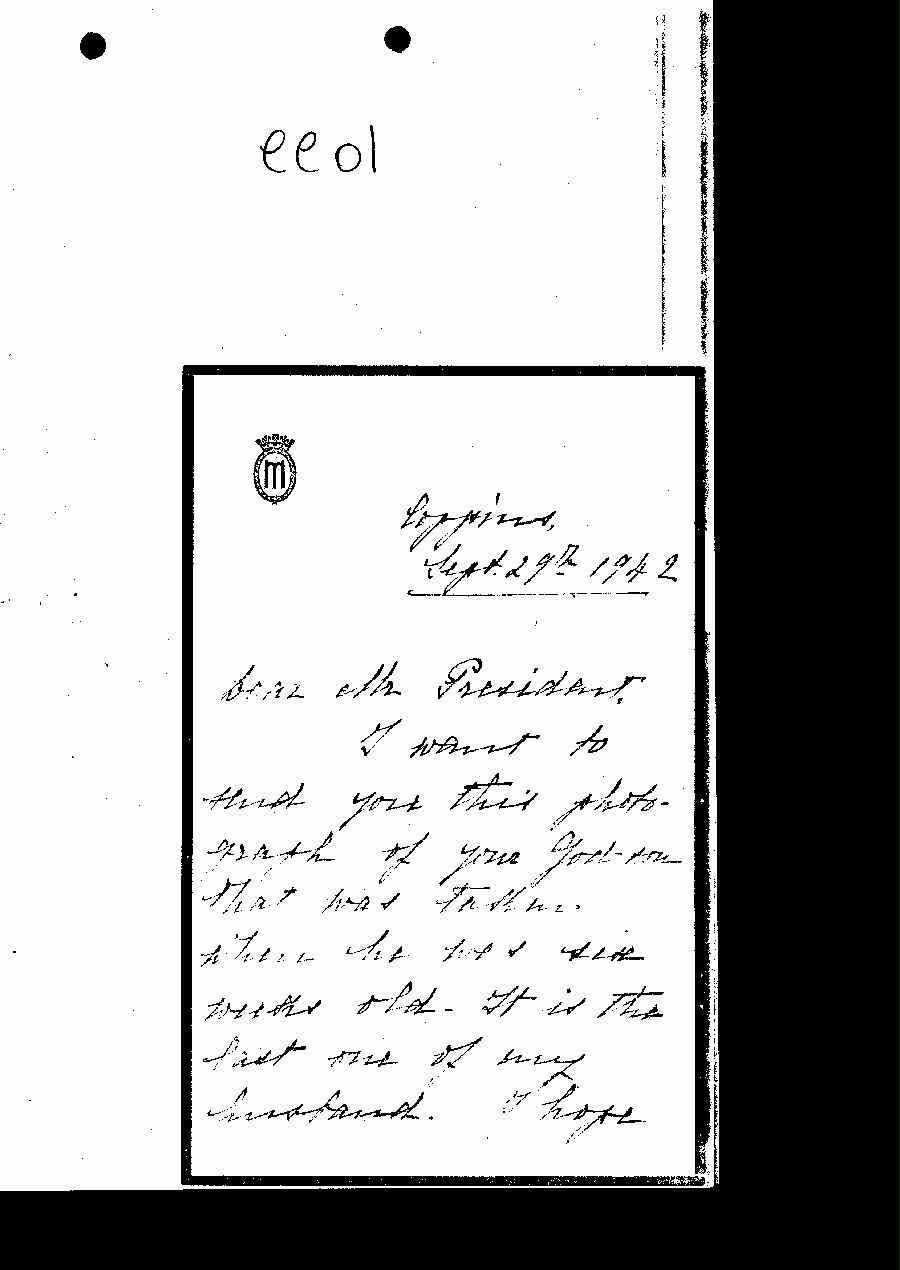 ee01
m
Coppins,
Sept. 29th 1942
Dear Mr President,
I want to
send you this photo-
graph of your God-son
that was taken
when he was six
weeks old - It is the
last one of my
husband. I hope